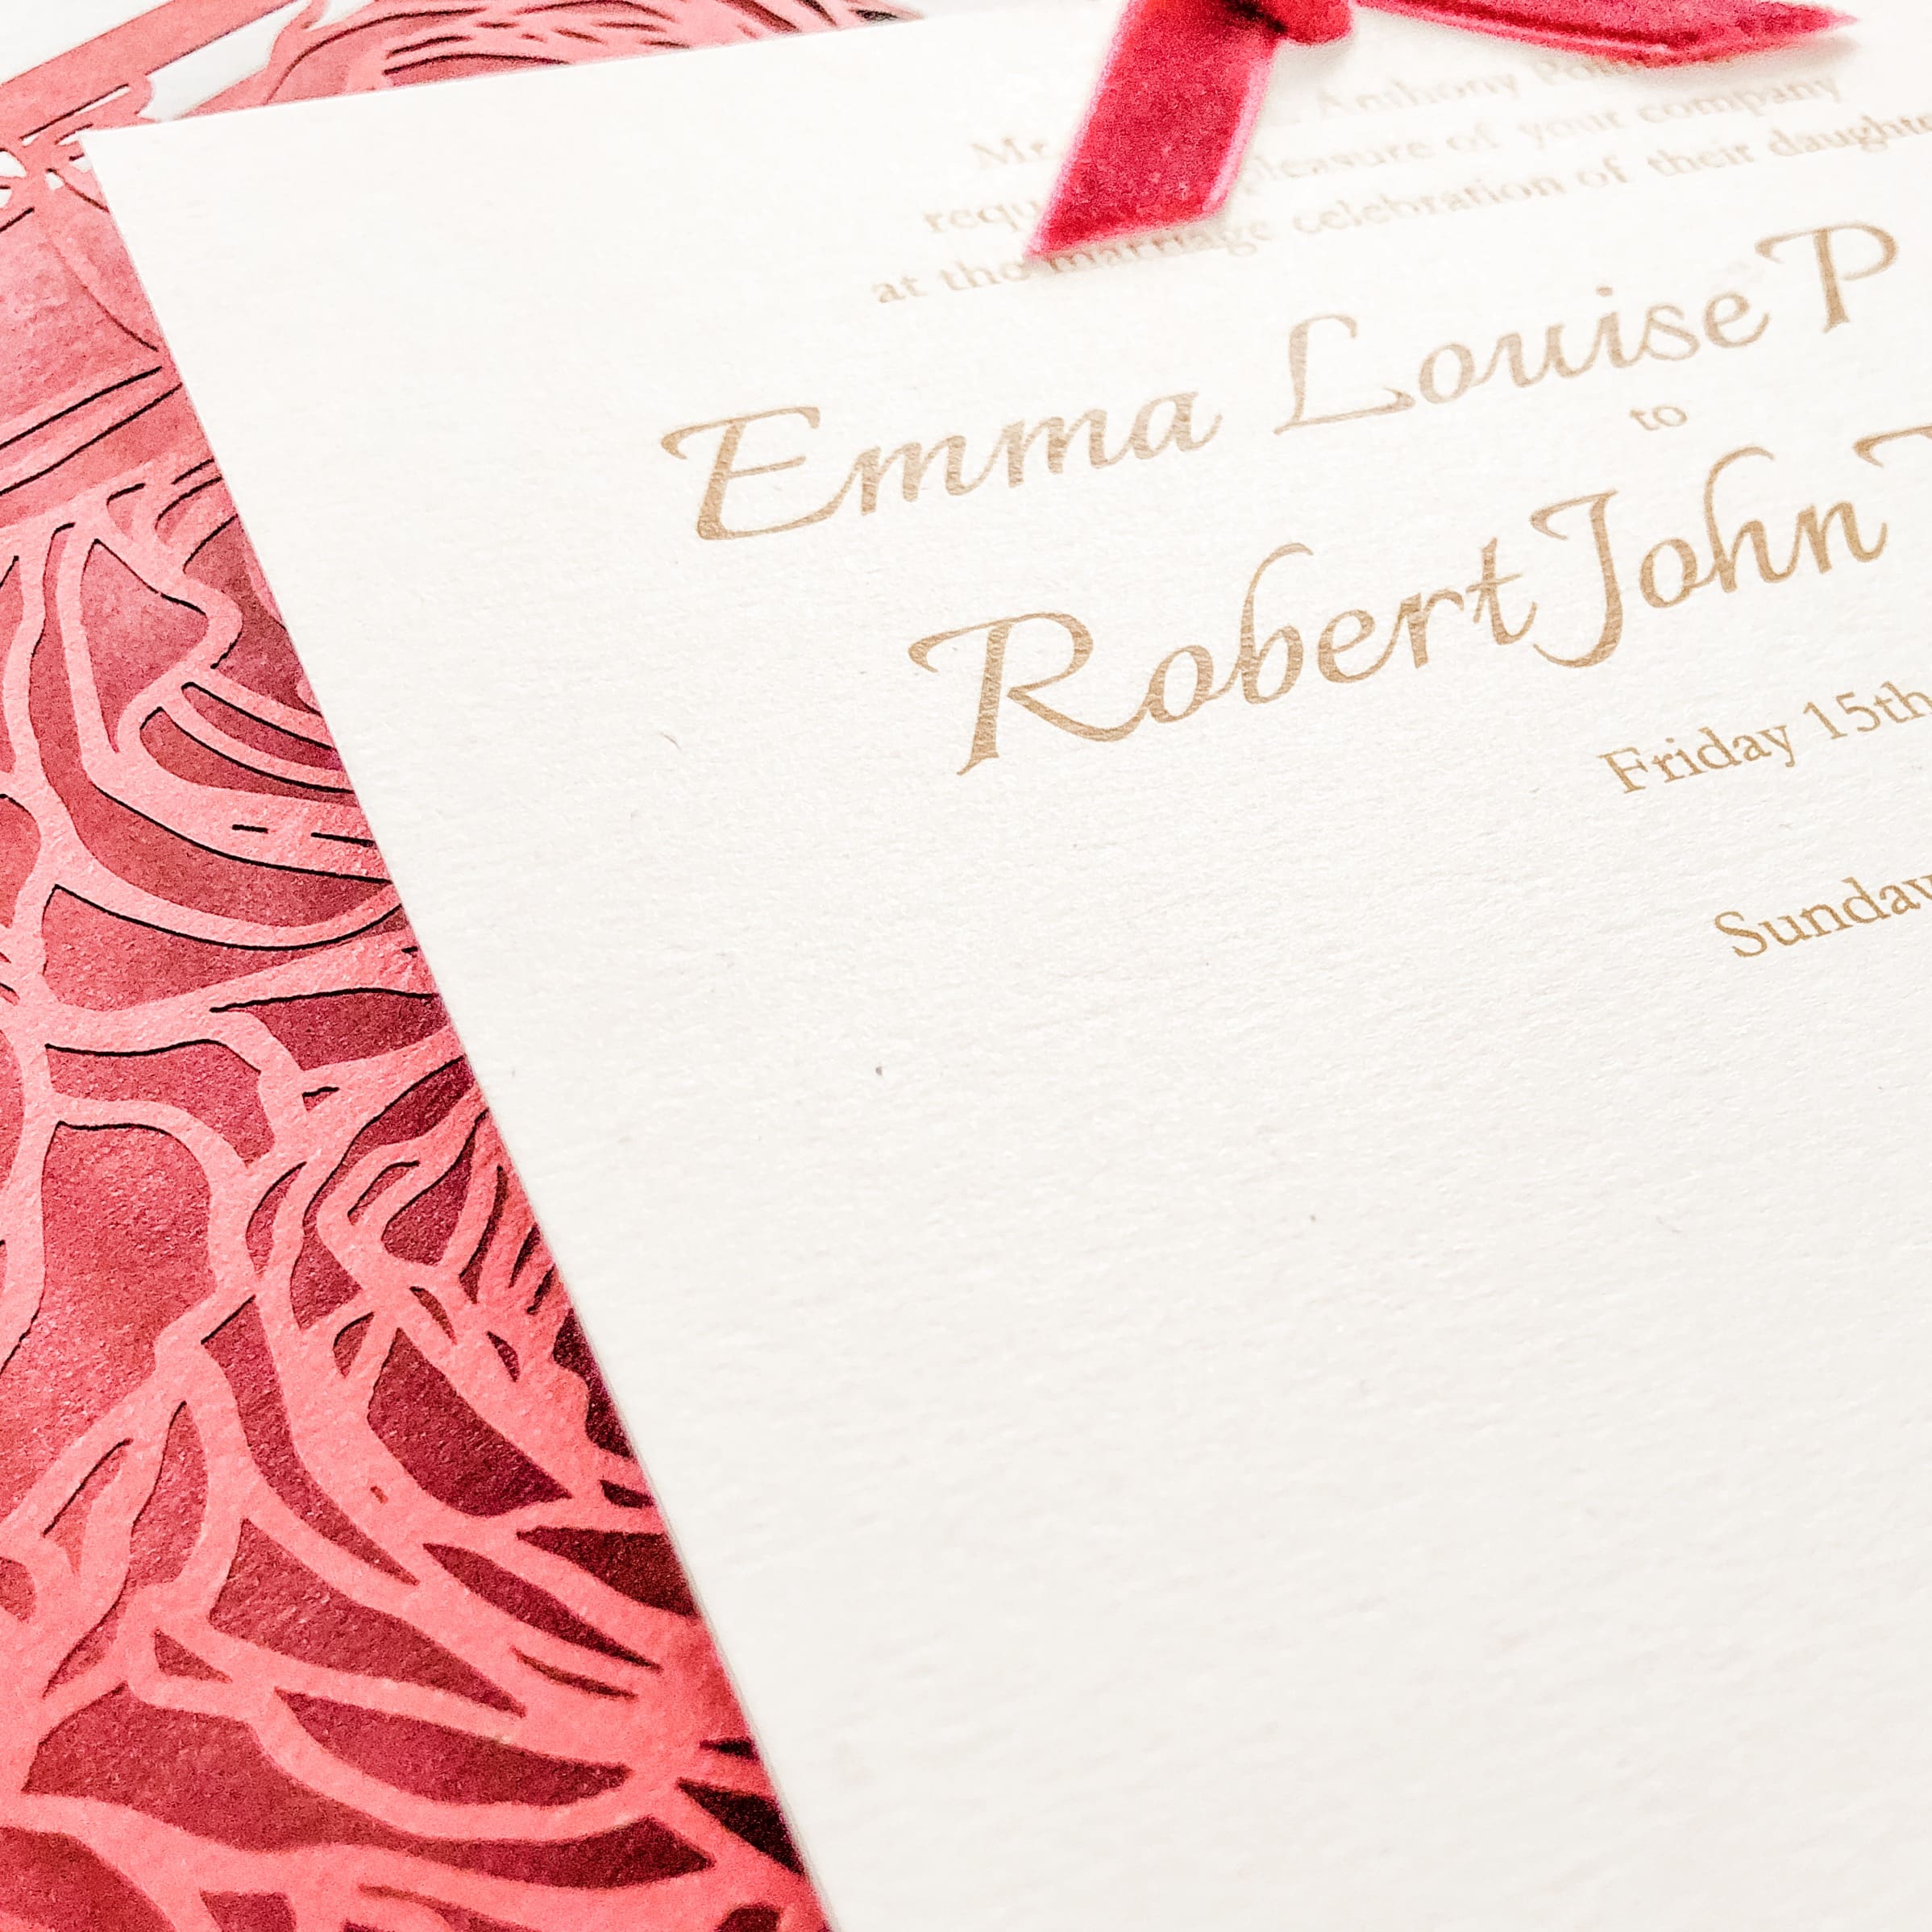 Mr Anthony
pleasure of your company
at the marriage celebration of their
Emma Louise P
to
Robert John
Friday 15th
Sunday